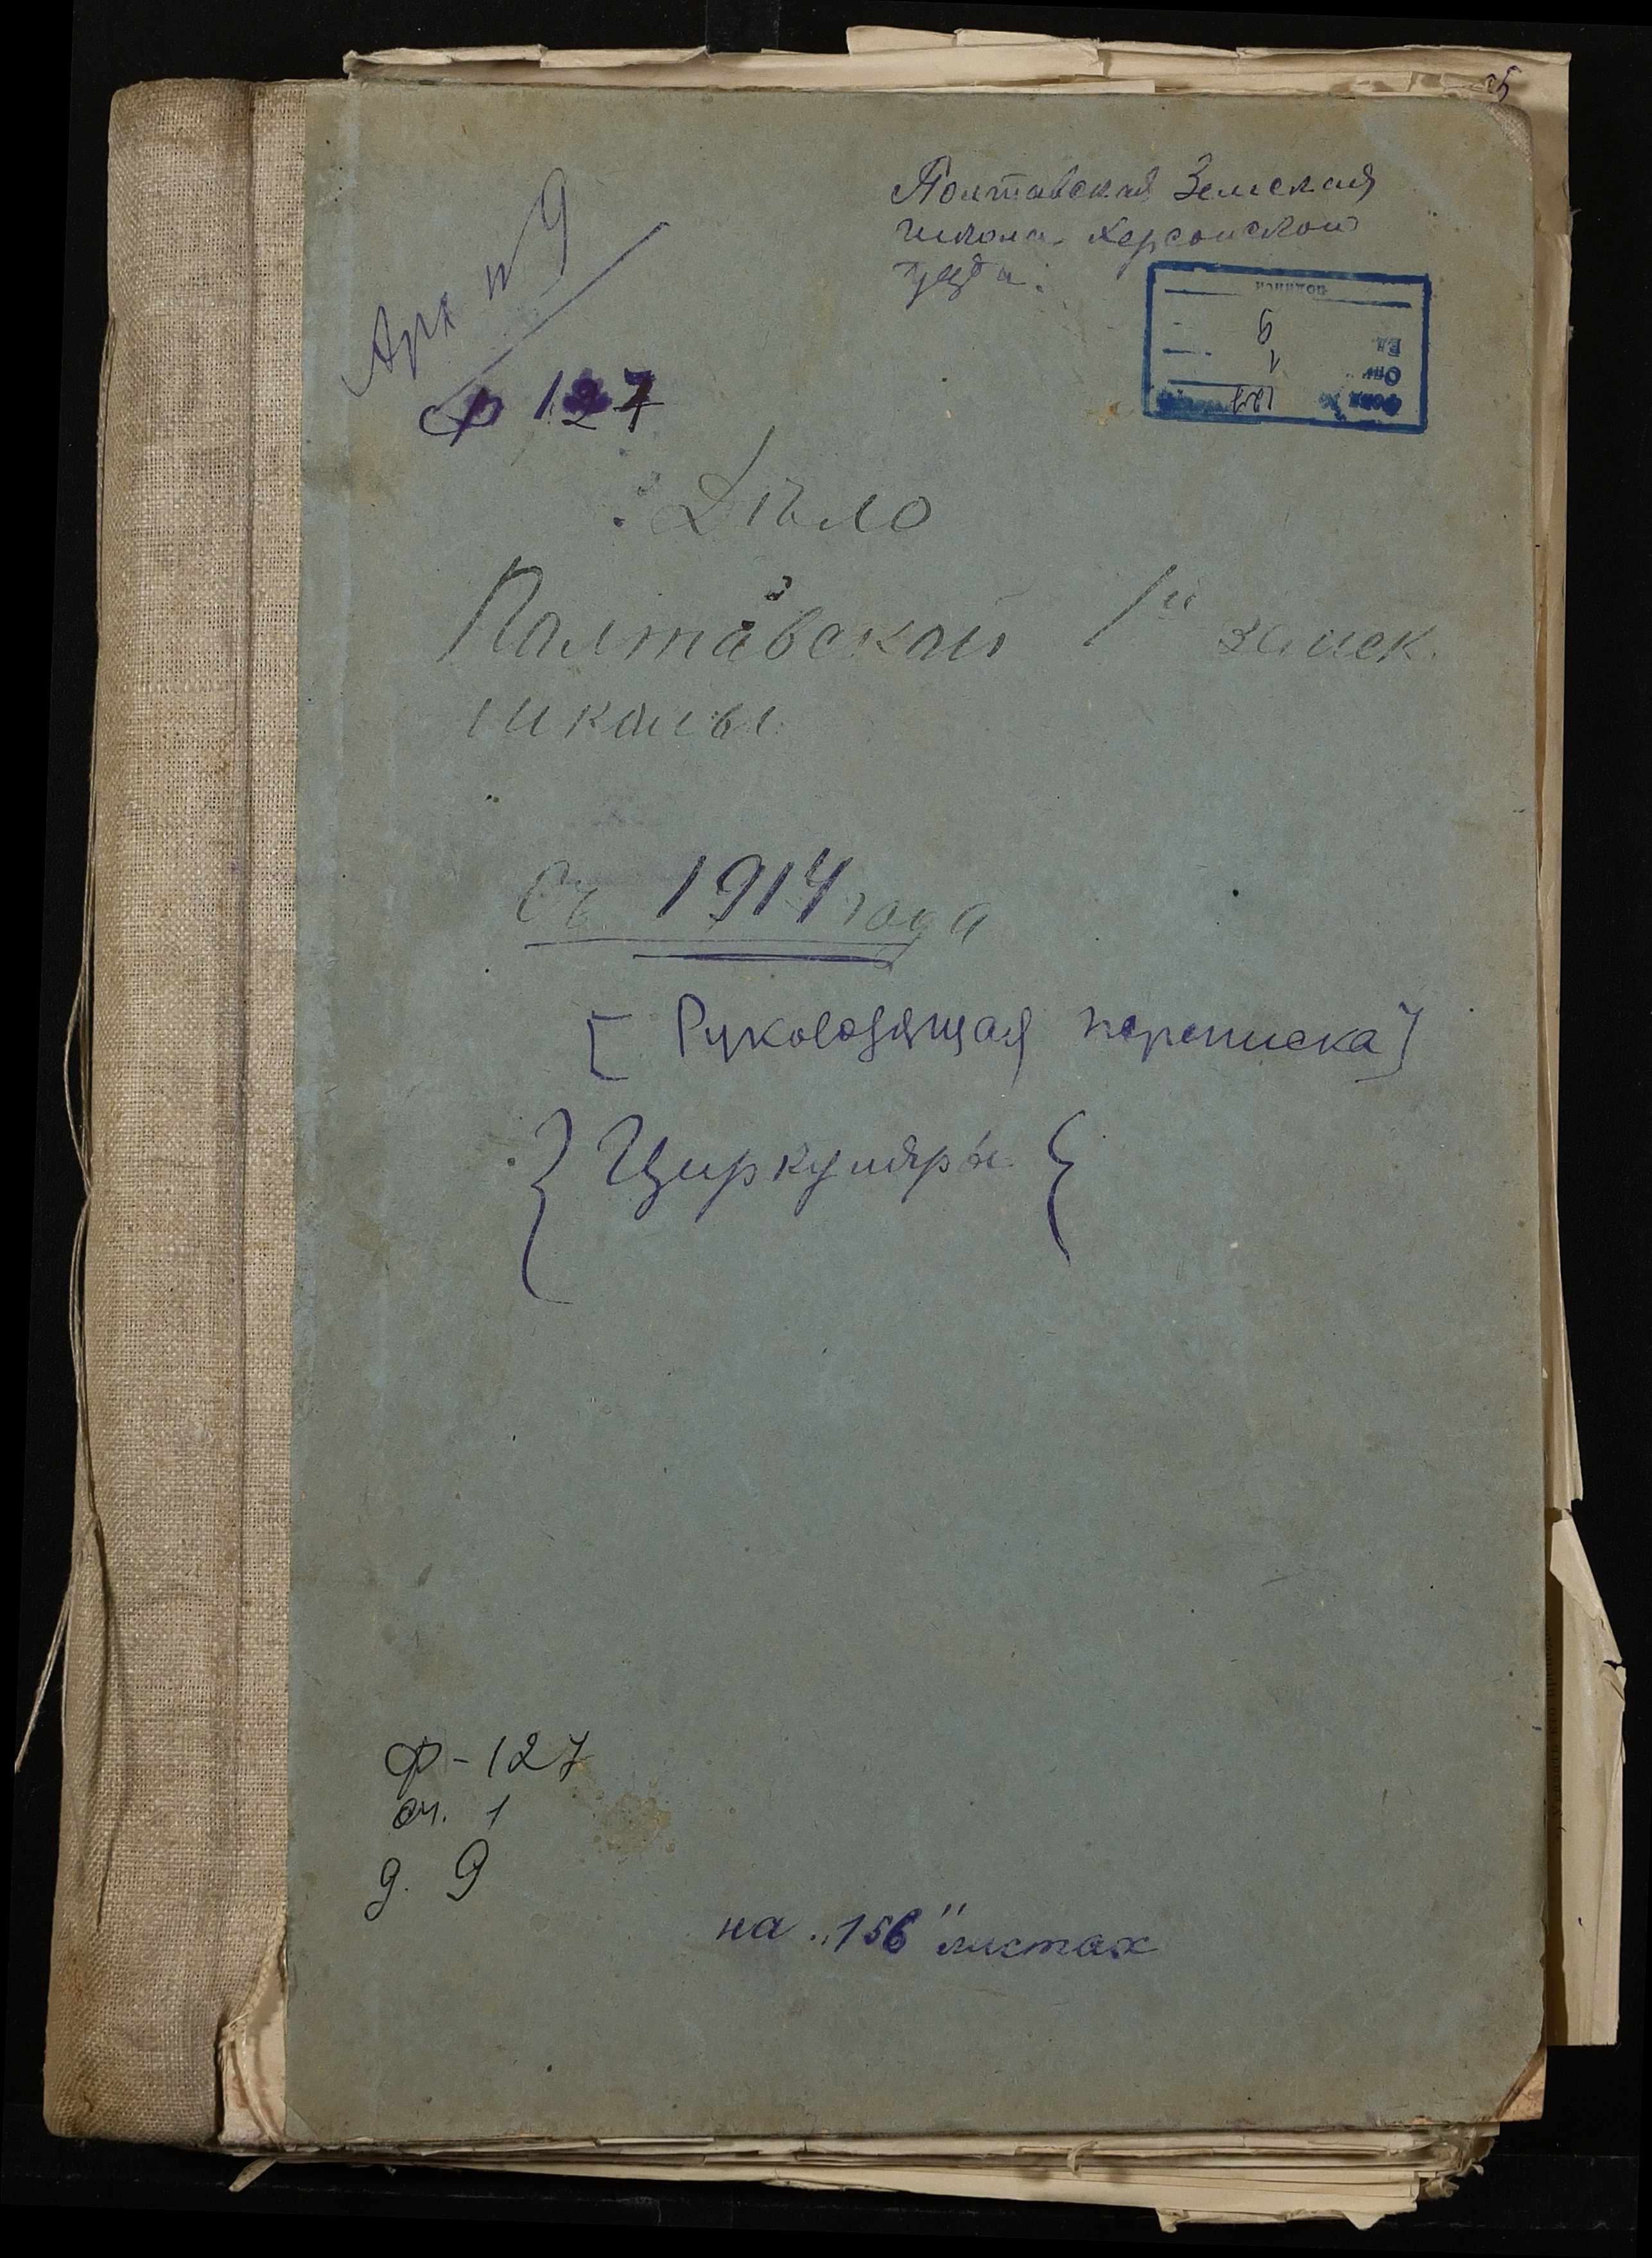 Полтавская Земская
школа Херсонской
Арх № 9
ф 127
подписи
Ед. 9
Оп. 1
Фонд № 127
Дѣло
Полтавской 1й земск.
школы
Съ 1914 года
[ Руководящая переписка ]
} Циркуляры {
ф-127
оп. 1
д. 9
на „156" листах